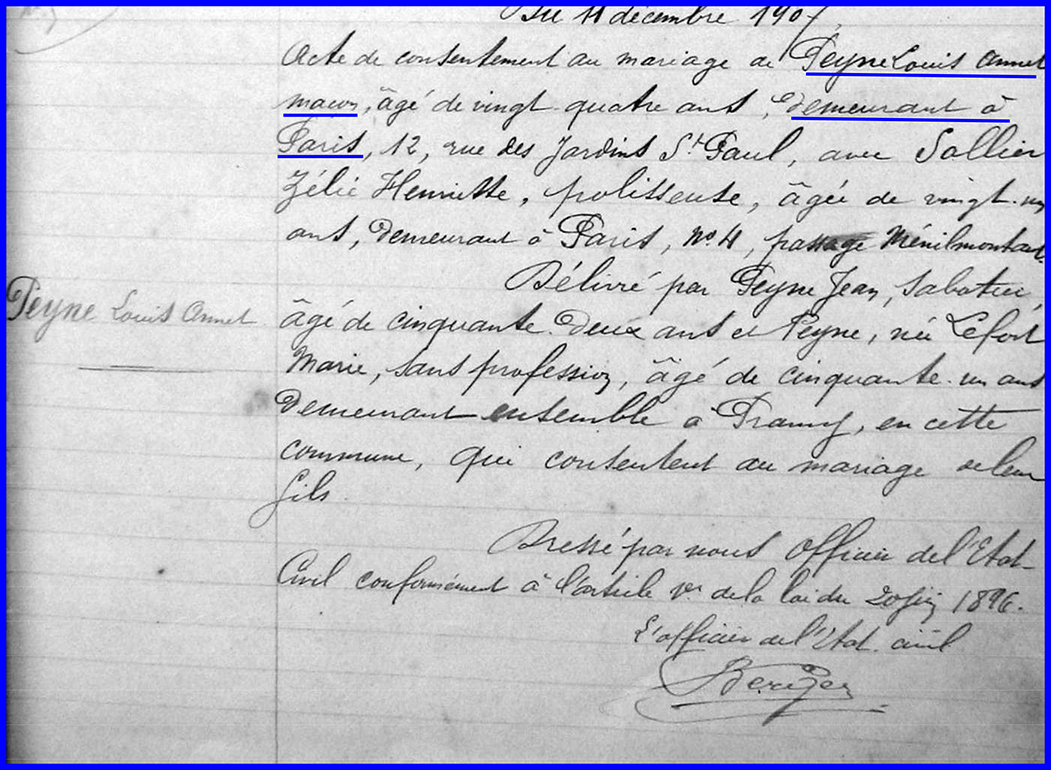 Du 11 décembre 1907
Acte de consentement au mariage de Peyne Louis Annet
maçon, âgé de vingt quatre ans, demeurant à
Paris, 12, rue des Jardins St Paul, avec Sallier
Zélie Henriette, polisseuse, âgée de vingt-un
ans, demeurant à Paris, No 4, passage Ménilmontant.
Délivré par Peyne Jean, sabotier,
Peyne Louis Annet
âgé de cinquante-deux ans et Peyne, née Lefort
Marie, sans profession, âgé de cinquante-un ans
demeurant ensemble à, en cette
commune, qui consentent au mariage de leur
fils.
Dressé par nous officier de l'Etat-
Civil conformément à l'article 1er de la loi du 20 juin 1896.
L'officier de l'Etat civil